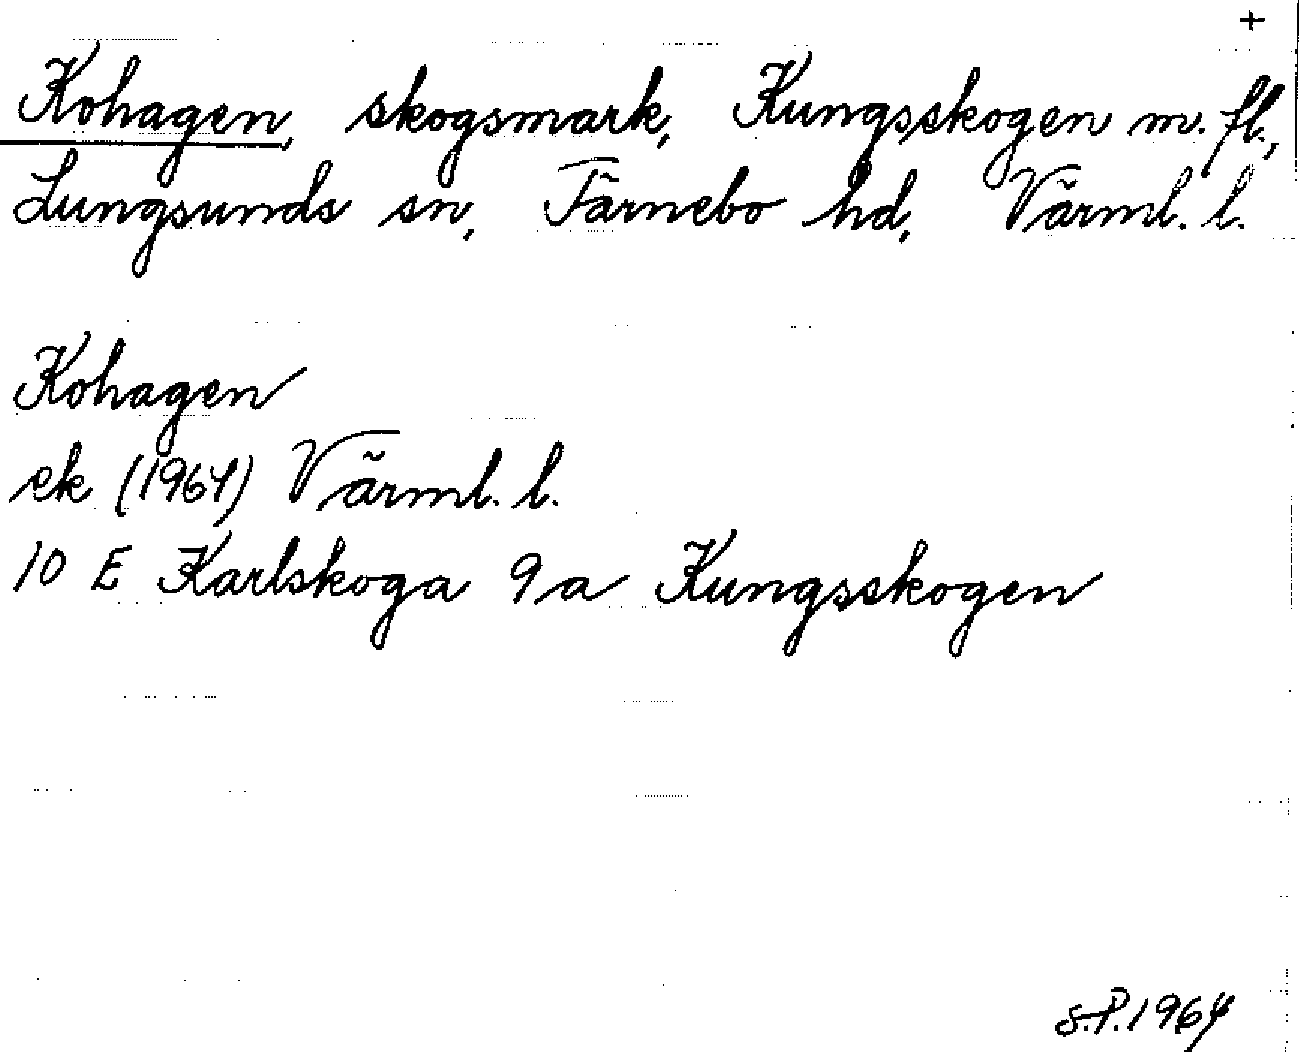 +
Kohagen, skogsmark, Kungsskogen m. fl.,
Lungsunds sn, Färnebo hd, Värml. l.
Kohagen
ek (1964) Värml. l.
10 E Karlskoga 9 a Kungsskogen
S.P. 1964